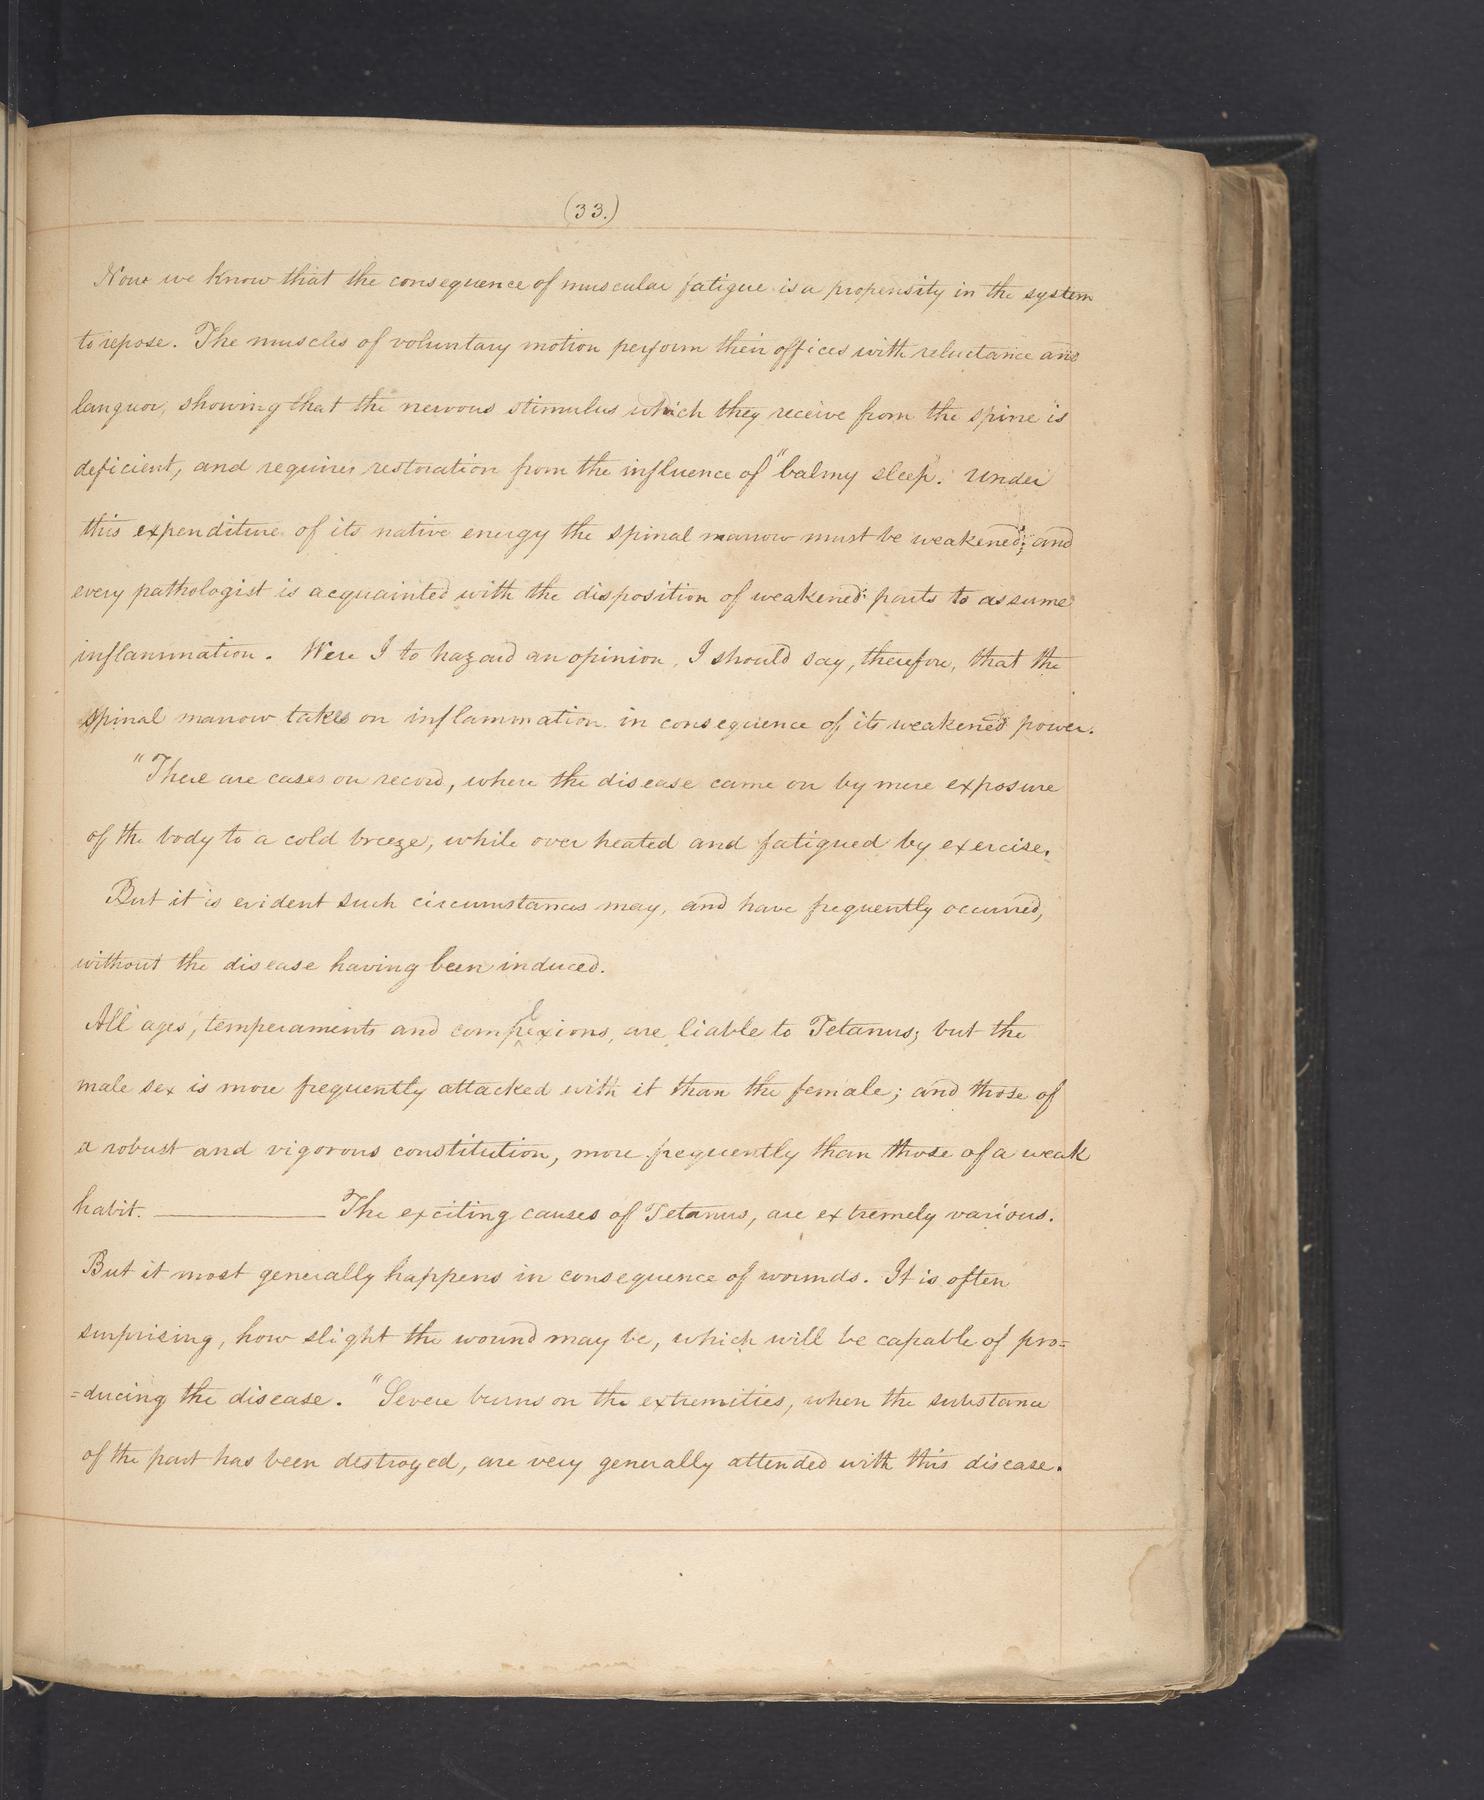 (33.)
Now we know that the consequence of muscular fatigue is a propensity in the system
to repose. The muscles of voluntary motion perform their offices with reluctance and
languor, showing that the nervous stimulus which they receive from the spine is
deficient, and requires restoration from the influence of "balmy sleep." Under
this expenditure of its native energy the spinal marrow must be weakened; and
every pathologist is acquainted with the disposition of weakened parts to assume
inflammation. Were I to hazard an opinion, I should say, therefore, that the
spinal marrow takes on inflammation in consequence of its weakened power.
"There are cases on record, where the disease came on by mere exposure
of the body to a cold breeze, while over heated and fatigued by exercise.
But it is evident such circumstances may, and have frequently occurred,
without the disease having been induced.
All ages, temperaments and complexions, are liable to Tetanus; but the
male sex is more frequently attacked with it than the female; and those of
a robust and vigorous constitution, more frequently than those of a weak
habit. ———— The exciting causes of Tetanus, are extremely various.
But it most generally happens in consequence of wounds. It is often
surprising, how slight the wound may be, which will be capable of pro=
=ducing the disease. "Severe burns on the extremities, when the substance
of the part has been destroyed, are very generally attended with this disease.